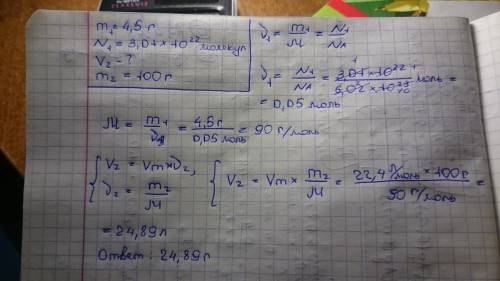 m₁ = 4,5 г
N₁ = 3,01 × 10²² молекул
V₂ - ?
m₂ = 100 г
ν₁ = m₁/M = N₁/NA
ν₁ = N₁/NA = 3,01 × 10²²/6,02 × 10²³ моль =
= 0,05 моль
M = m₁/ν₁ = 4,5 г/0,05 моль = 90 г/моль
{ V₂ = Vm × ν₂,
ν₂ = m₂/M
{ V₂ = Vm × m₂/M = 22,4 л/моль × 100 г/90 г/моль =
= 24,89 л
Ответ: 24,89 л